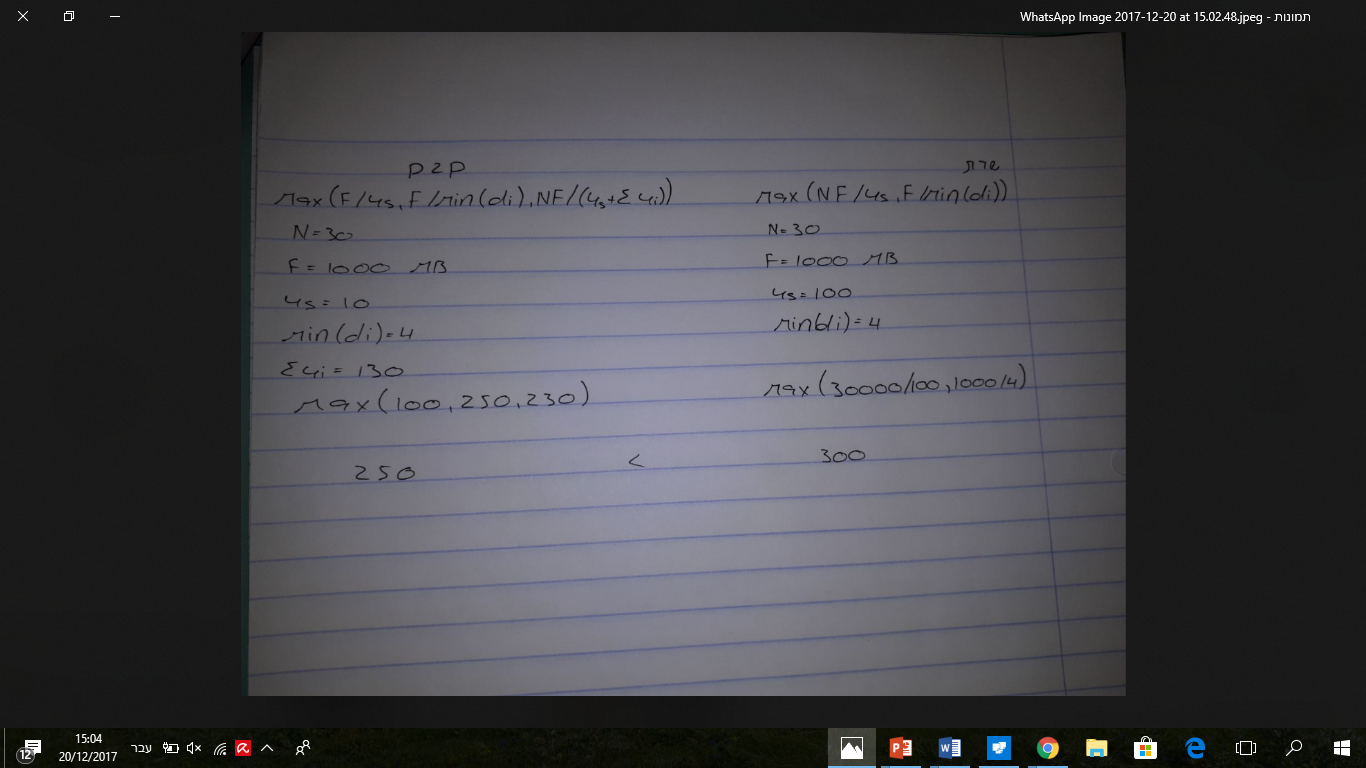 WhatsApp Image 2017-12-20 at 15.02.48.jpeg - תמונות
P2P
max(F/us, F/min(di), NF/(us+Σui))
N=30
F=1000 MB
us=10
min(di)=4
Σui=130
max(100,250,230)
250
<
שרת
max(NF/us, F/min(di))
N=30
F=1000 MB
us=100
min(di)=4
max(30000/100,1000/4)
300
15:04
20/12/2017
עבר
12